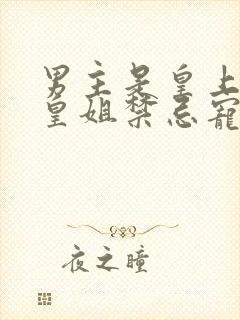 男主是皇上
皇姐禁忌寵
夜之瞳